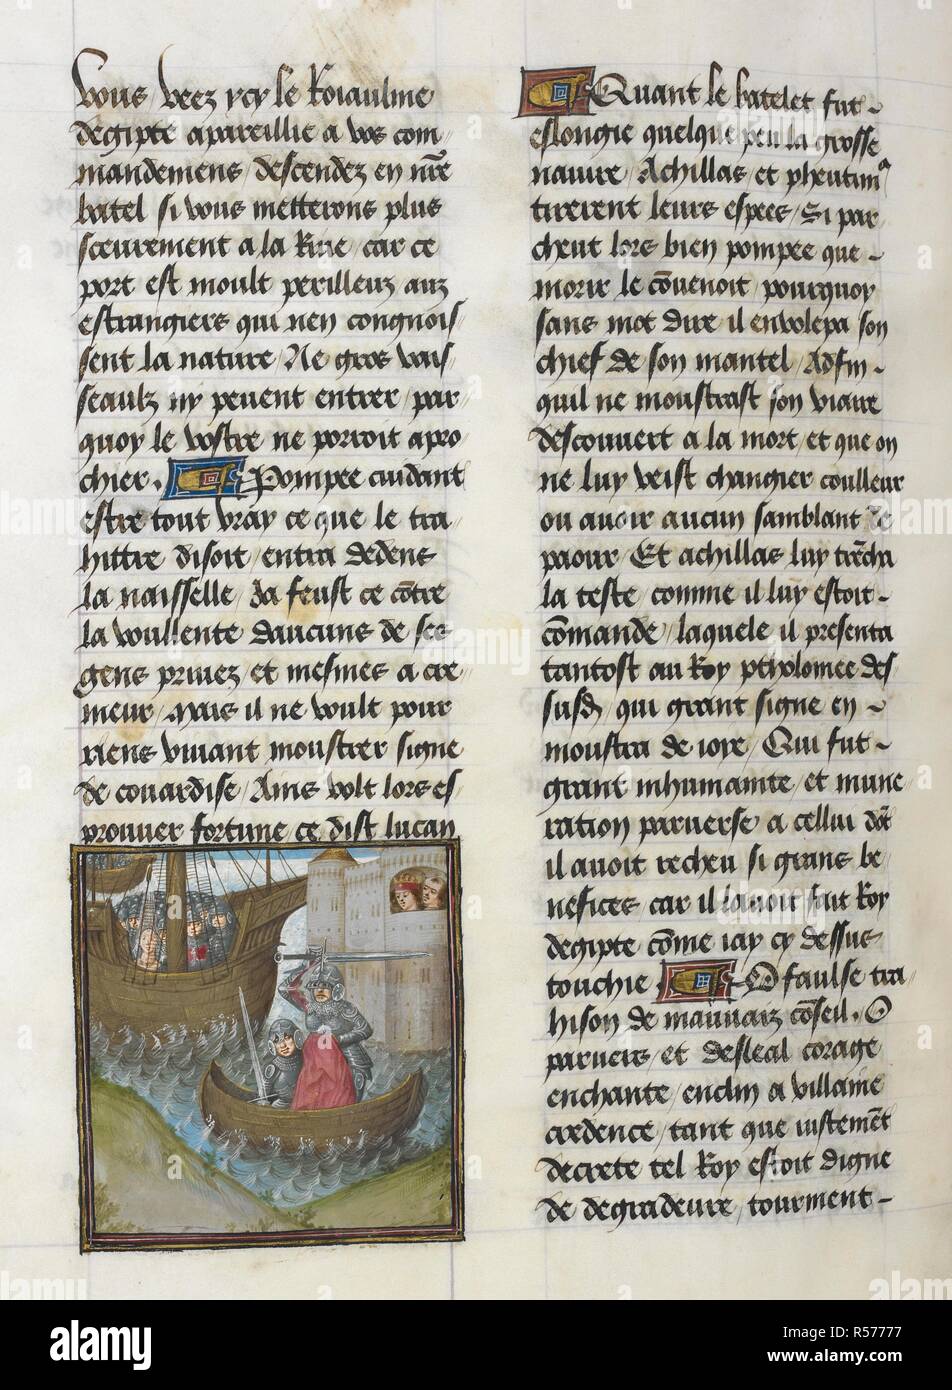 vous veez ycy le Roiaulme
degipte apareillie a vos com-
mandemens / descendez en nr̄e
batel si vous metterons plus
sceurement a la Riue / car ce
port est moult perilleux aux
estrangiers qui nen congnois-
sent la nature / Ne gros vais-
seaulx ny peuent entrer / par-
quoy le vostre ne porroit apro-
chier. Pompee cuidant
estre tout vray ce que le tra-
hittre disoit / entra dedens
la naisselle / Ja feust ce cōtre
la voullente daucuns de ses
gens priuez / et mesmes a cre-
meur / Mais il ne voult pour
riens viuant moustrer signe
de couardise / Ains volt lors es-
prouuer fortune / ce dist lucan
Quant le batelet fut
eslongie quelque peu la grosse
nauire / Achillas et
tirerent leurs espees / Si par-
cheut lors bien pompee que
morir le cōuenoit / pourquoy
sans mot dire / il envolepa son
chief de son mantel / Adfin
quil ne moustrast son viaire
descouuert a la mort / et que on
ne luy veist changier coulleur
ou auoir aucun samblant de
paour / Et achillas luy trēcha
la teste / comme il luy estoit
cōmande / laquele il presenta
tantost au Roy ptholomee des-
susd̄ / qui grant signe en
moustra de ioye / Qui fut
grant inhumanite / et mune-
ration peruerse a cellui dōt
il auoit recheu si grans be-
nefices / car il lauoit fait Roy
degipte cōme iay cy dessus
touchie O faulse tra-
hison de mauuaix cōseil. O
peruers et desleal corage
enchante / enclin a villaine
credence / tant que iustemēt
decrete tel Roy estoit digne
de degradeure / tourment-
alamy
Image ID: R57777
www.alamy.com